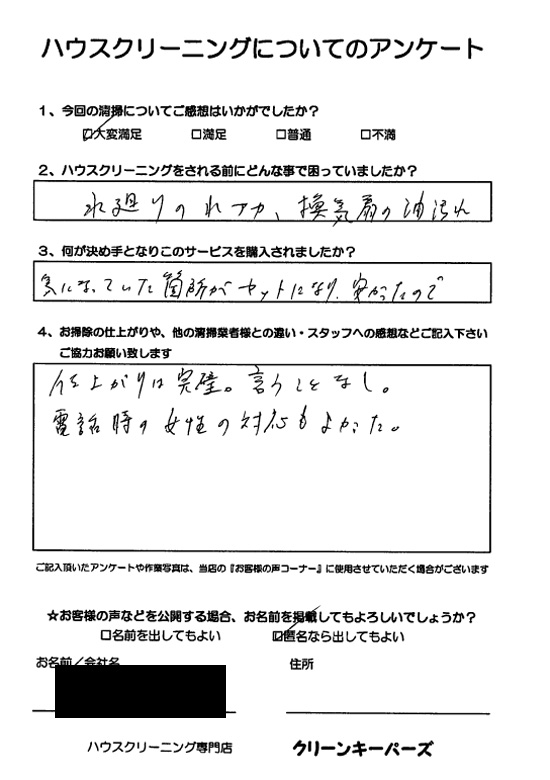 ハウスクリーニングについてのアンケート
1、今回の清掃についてご感想はいかがでしたか?
☑大変満足 □満足 □普通 □不満
2、ハウスクリーニングをされる前にどんな事で困っていましたか?
水廻りの水アカ、換気扇の油汚れ
3、何が決め手となりこのサービスを購入されましたか?
気になっていた箇所がセットになり、安かったので
4、お掃除の仕上がりや、他の清掃業者様との違い・スタッフへの感想などご記入下さい
ご協力お願い致します
仕上がりは完璧。言うことなし。
電話時の女性の対応もよかった。
ご記入頂いたアンケートや作業写真は、当店の『お客様の声コーナー』に使用させていただく場合がございます
☆お客様の声などを公開する場合、お名前を掲載してもよろしいでしょうか?
□名前を出してもよい ☑匿名なら出してもよい
お名前/会社名 住所
ハウスクリーニング専門店 クリーンキーパーズ